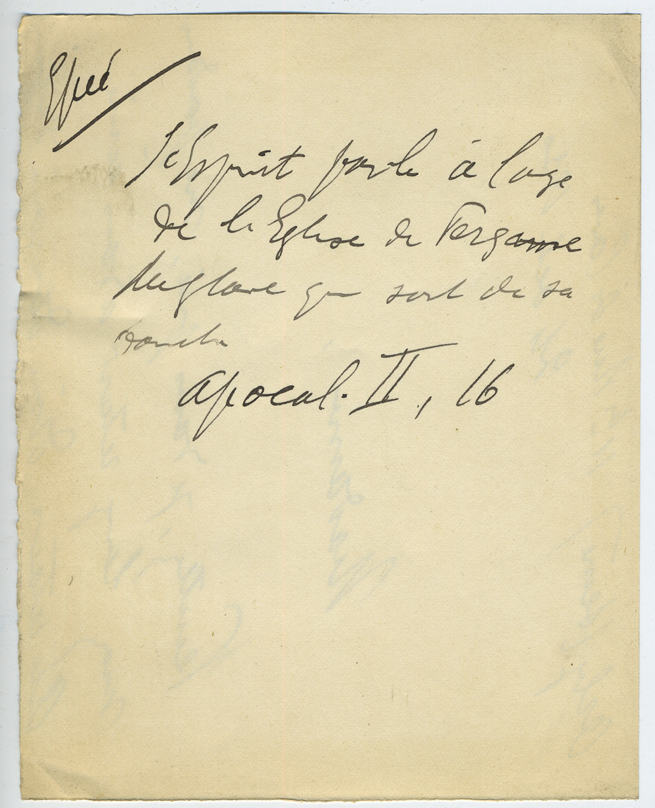 Epée
l'Esprit parle à l'ange
de l'Eglise de Pergame
du glaive qui sort de sa
bouche
Apocal. II, 16